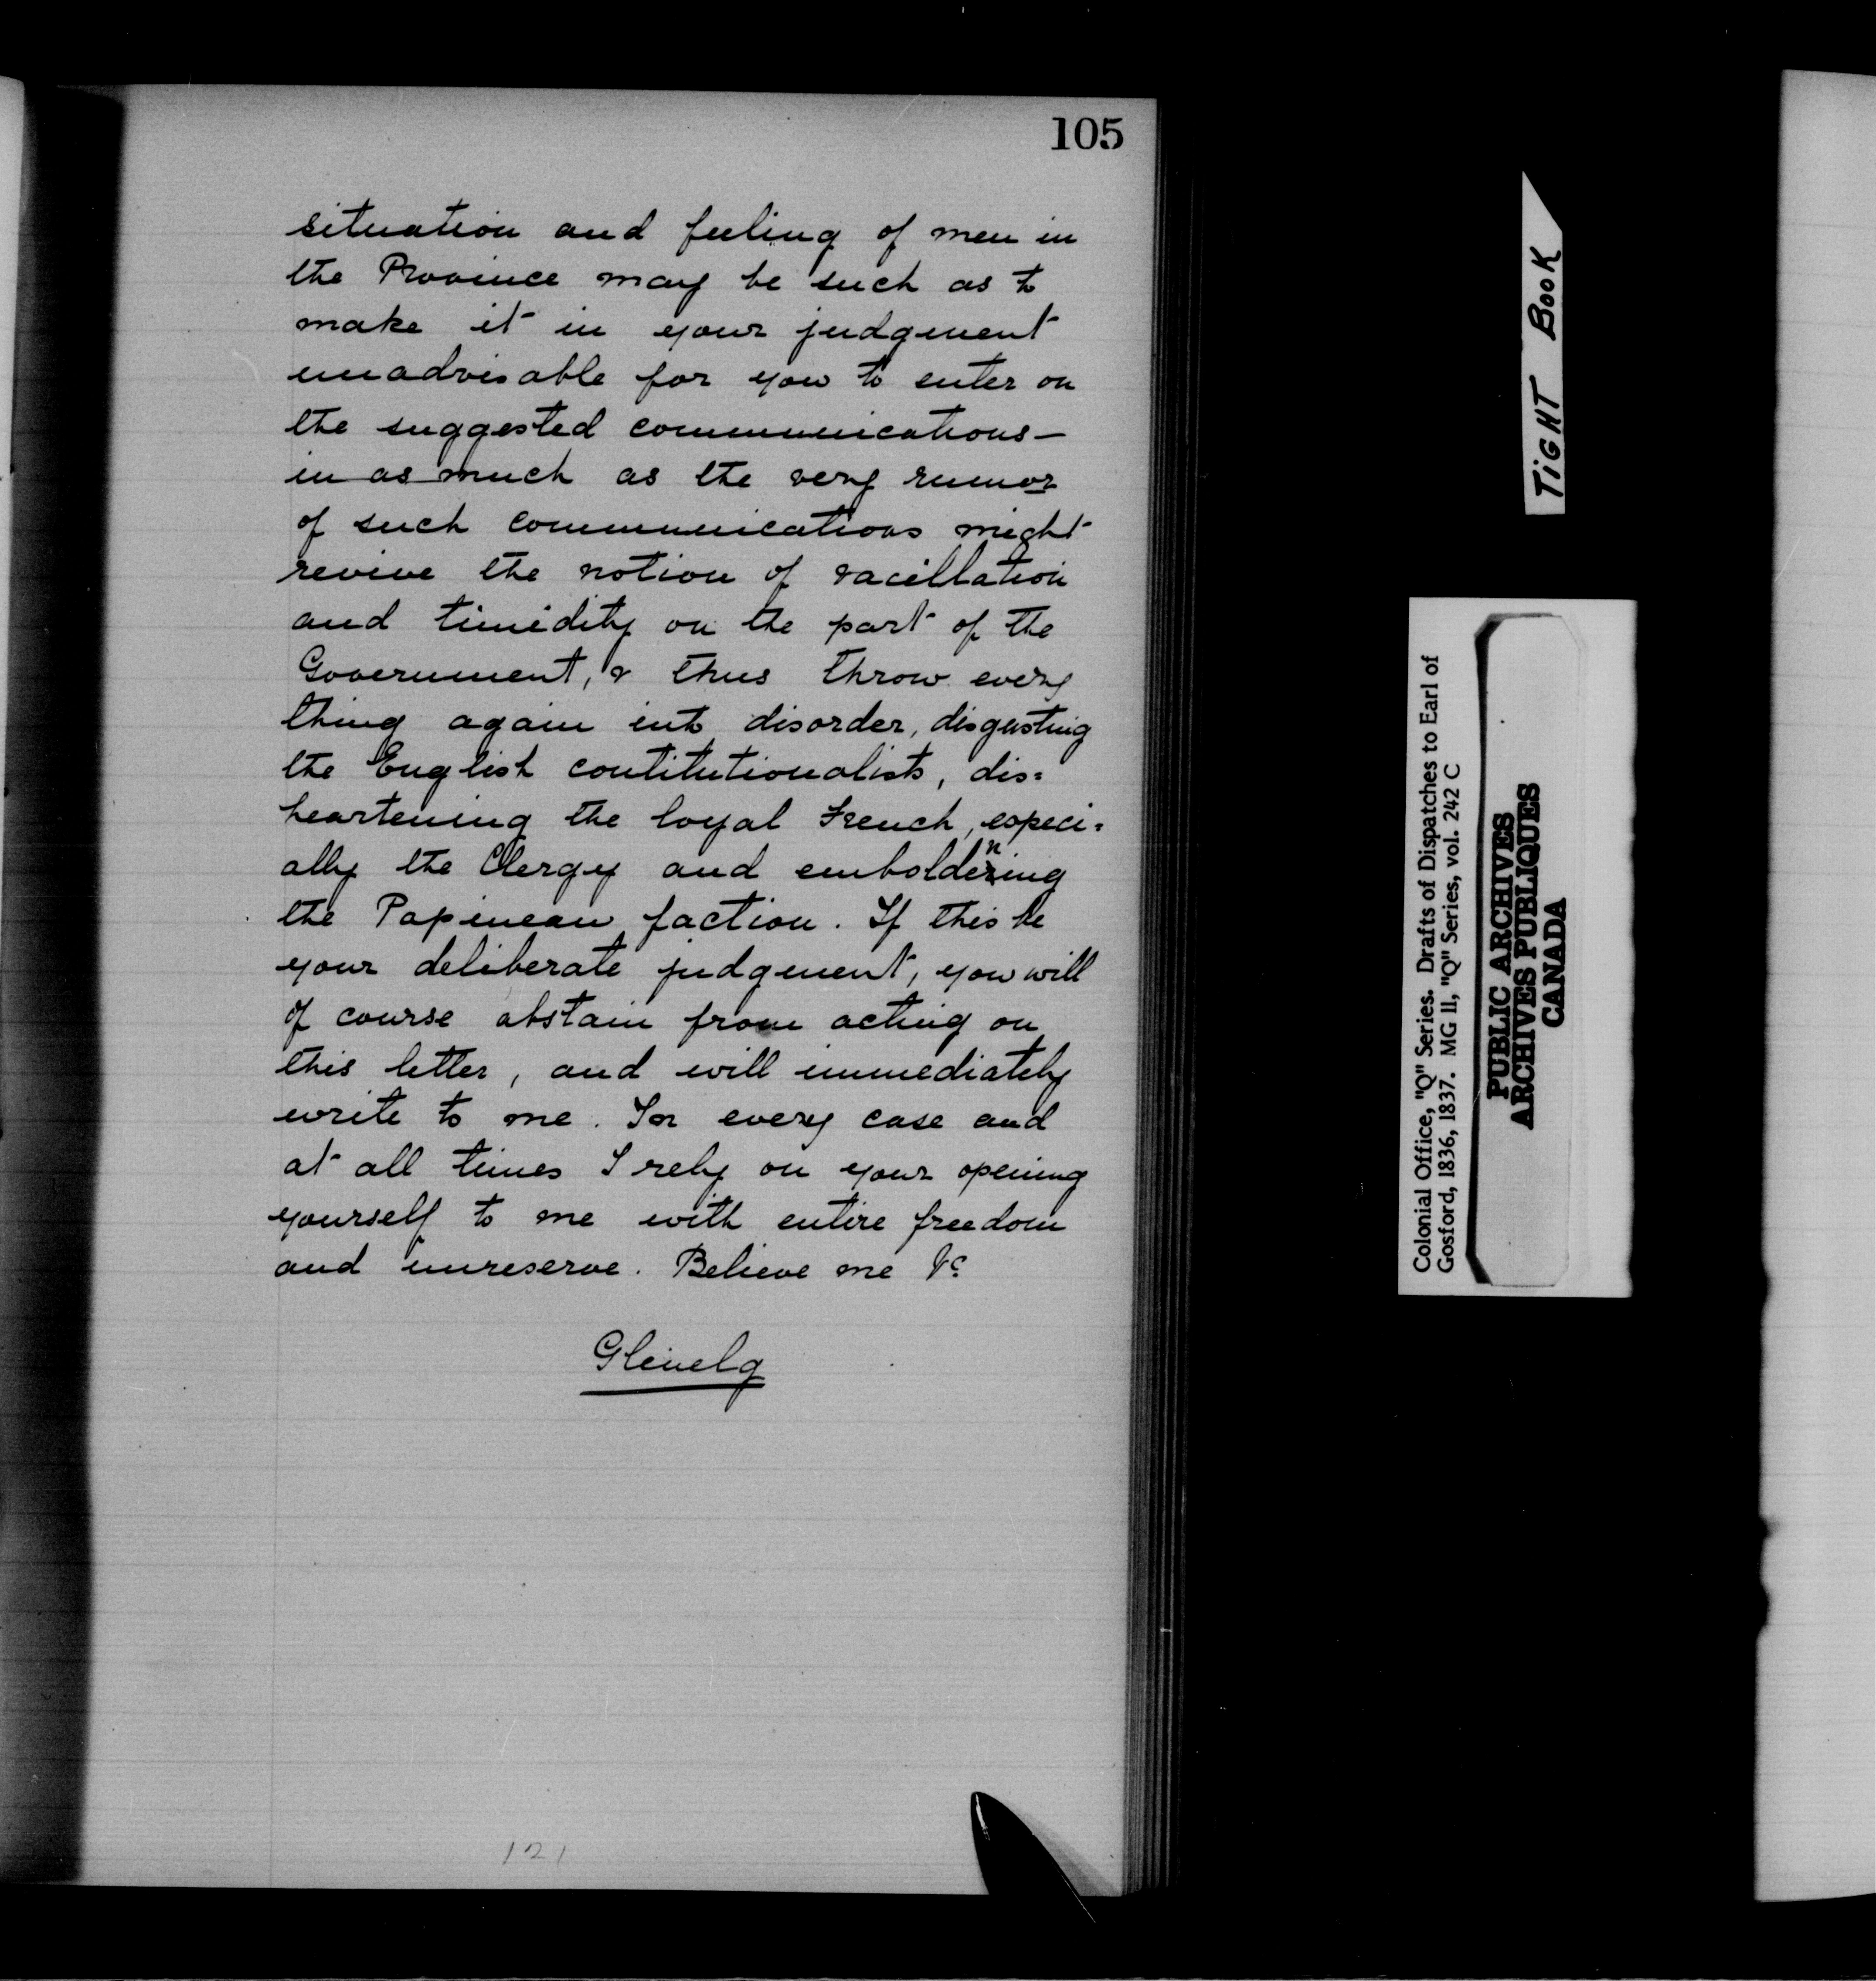 105
situation and feeling of men in
the Province may be such as to
make it in your judgement
unadvisable for you to enter on
the suggested communications—
in as much as the very rumor
of such communications might
revive the notion of vacillation
and timidity on the part of the
Government, & thus throw every
thing again into disorder, disgusting
the English contitutionalists, dis=
heartening the loyal French, especi=
ally the Clergy and emboldening
the Papineau faction. If this be
your deliberate judgement, you will
of course abstain from acting on
this letter, and will immediately
write to me. In every case and
at all times I rely on your opening
yourself to me with entire freedom
and unreserve. Believe me &c
Glenelg
121
TIGHT BOOK
Colonial Office, "Q" Series. Drafts of Dispatches to Earl of
Gosford, 1836, 1837. MG 11, "Q" Series, vol. 242 C
PUBLIC ARCHIVES
ARCHIVES PUBLIQUES
CANADA